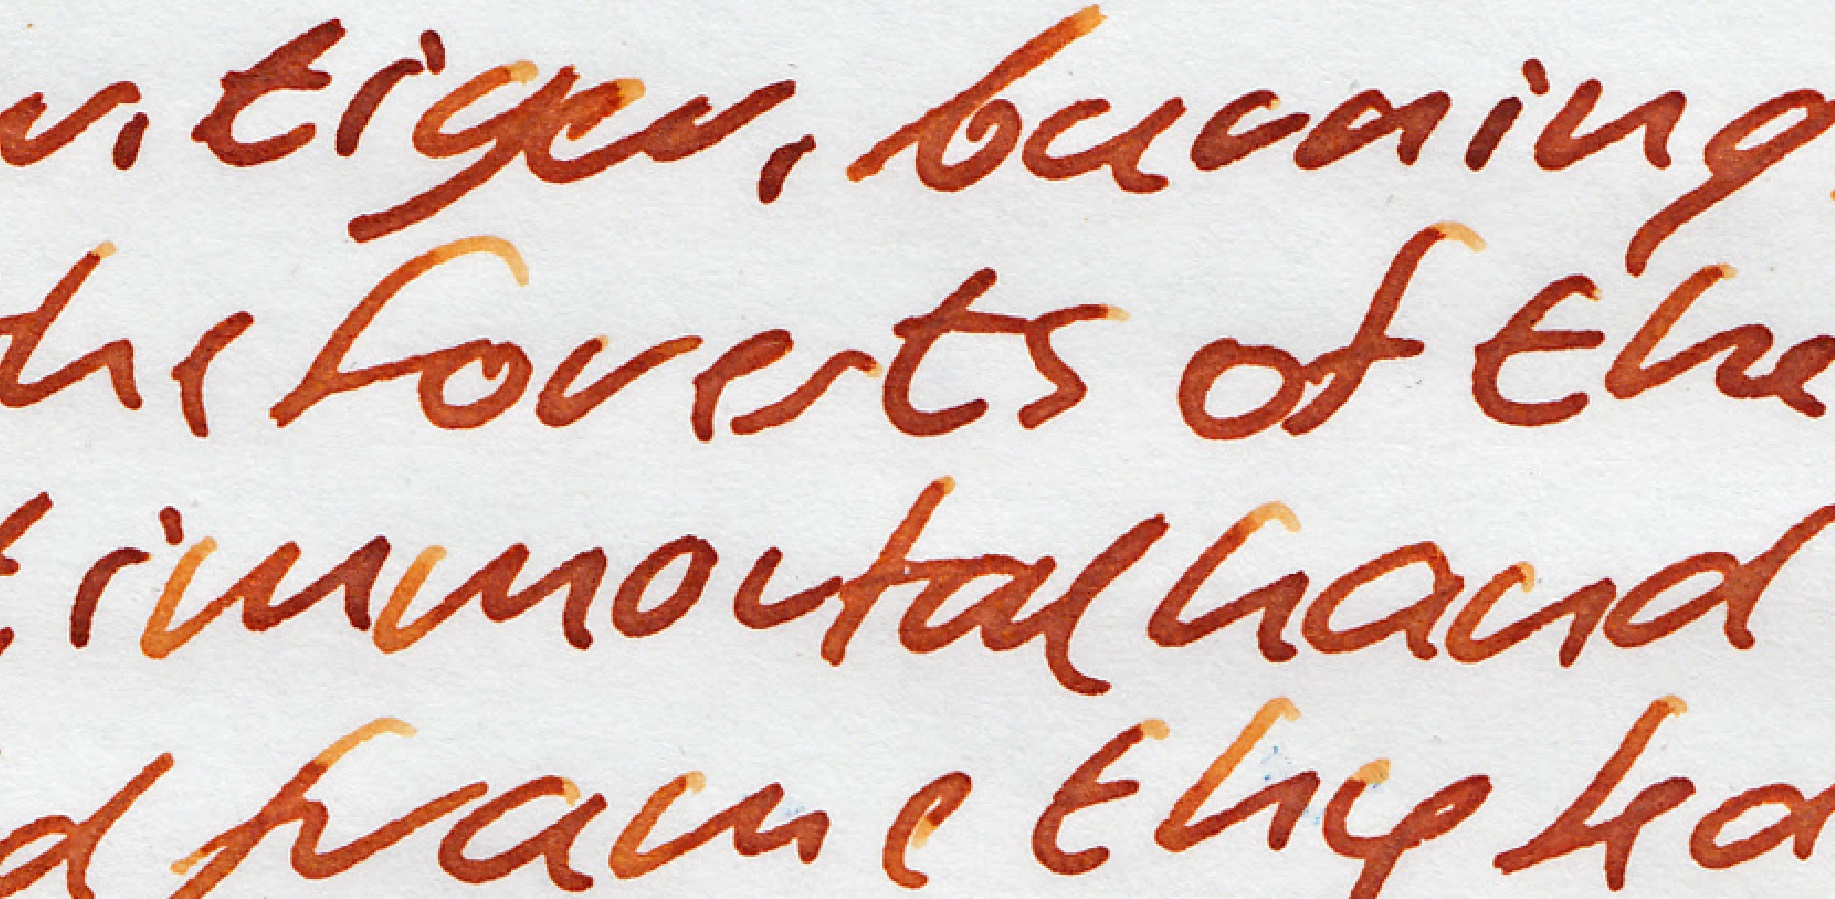 r, tiger, burning
he forests of the
t immortal hand
d frame thy